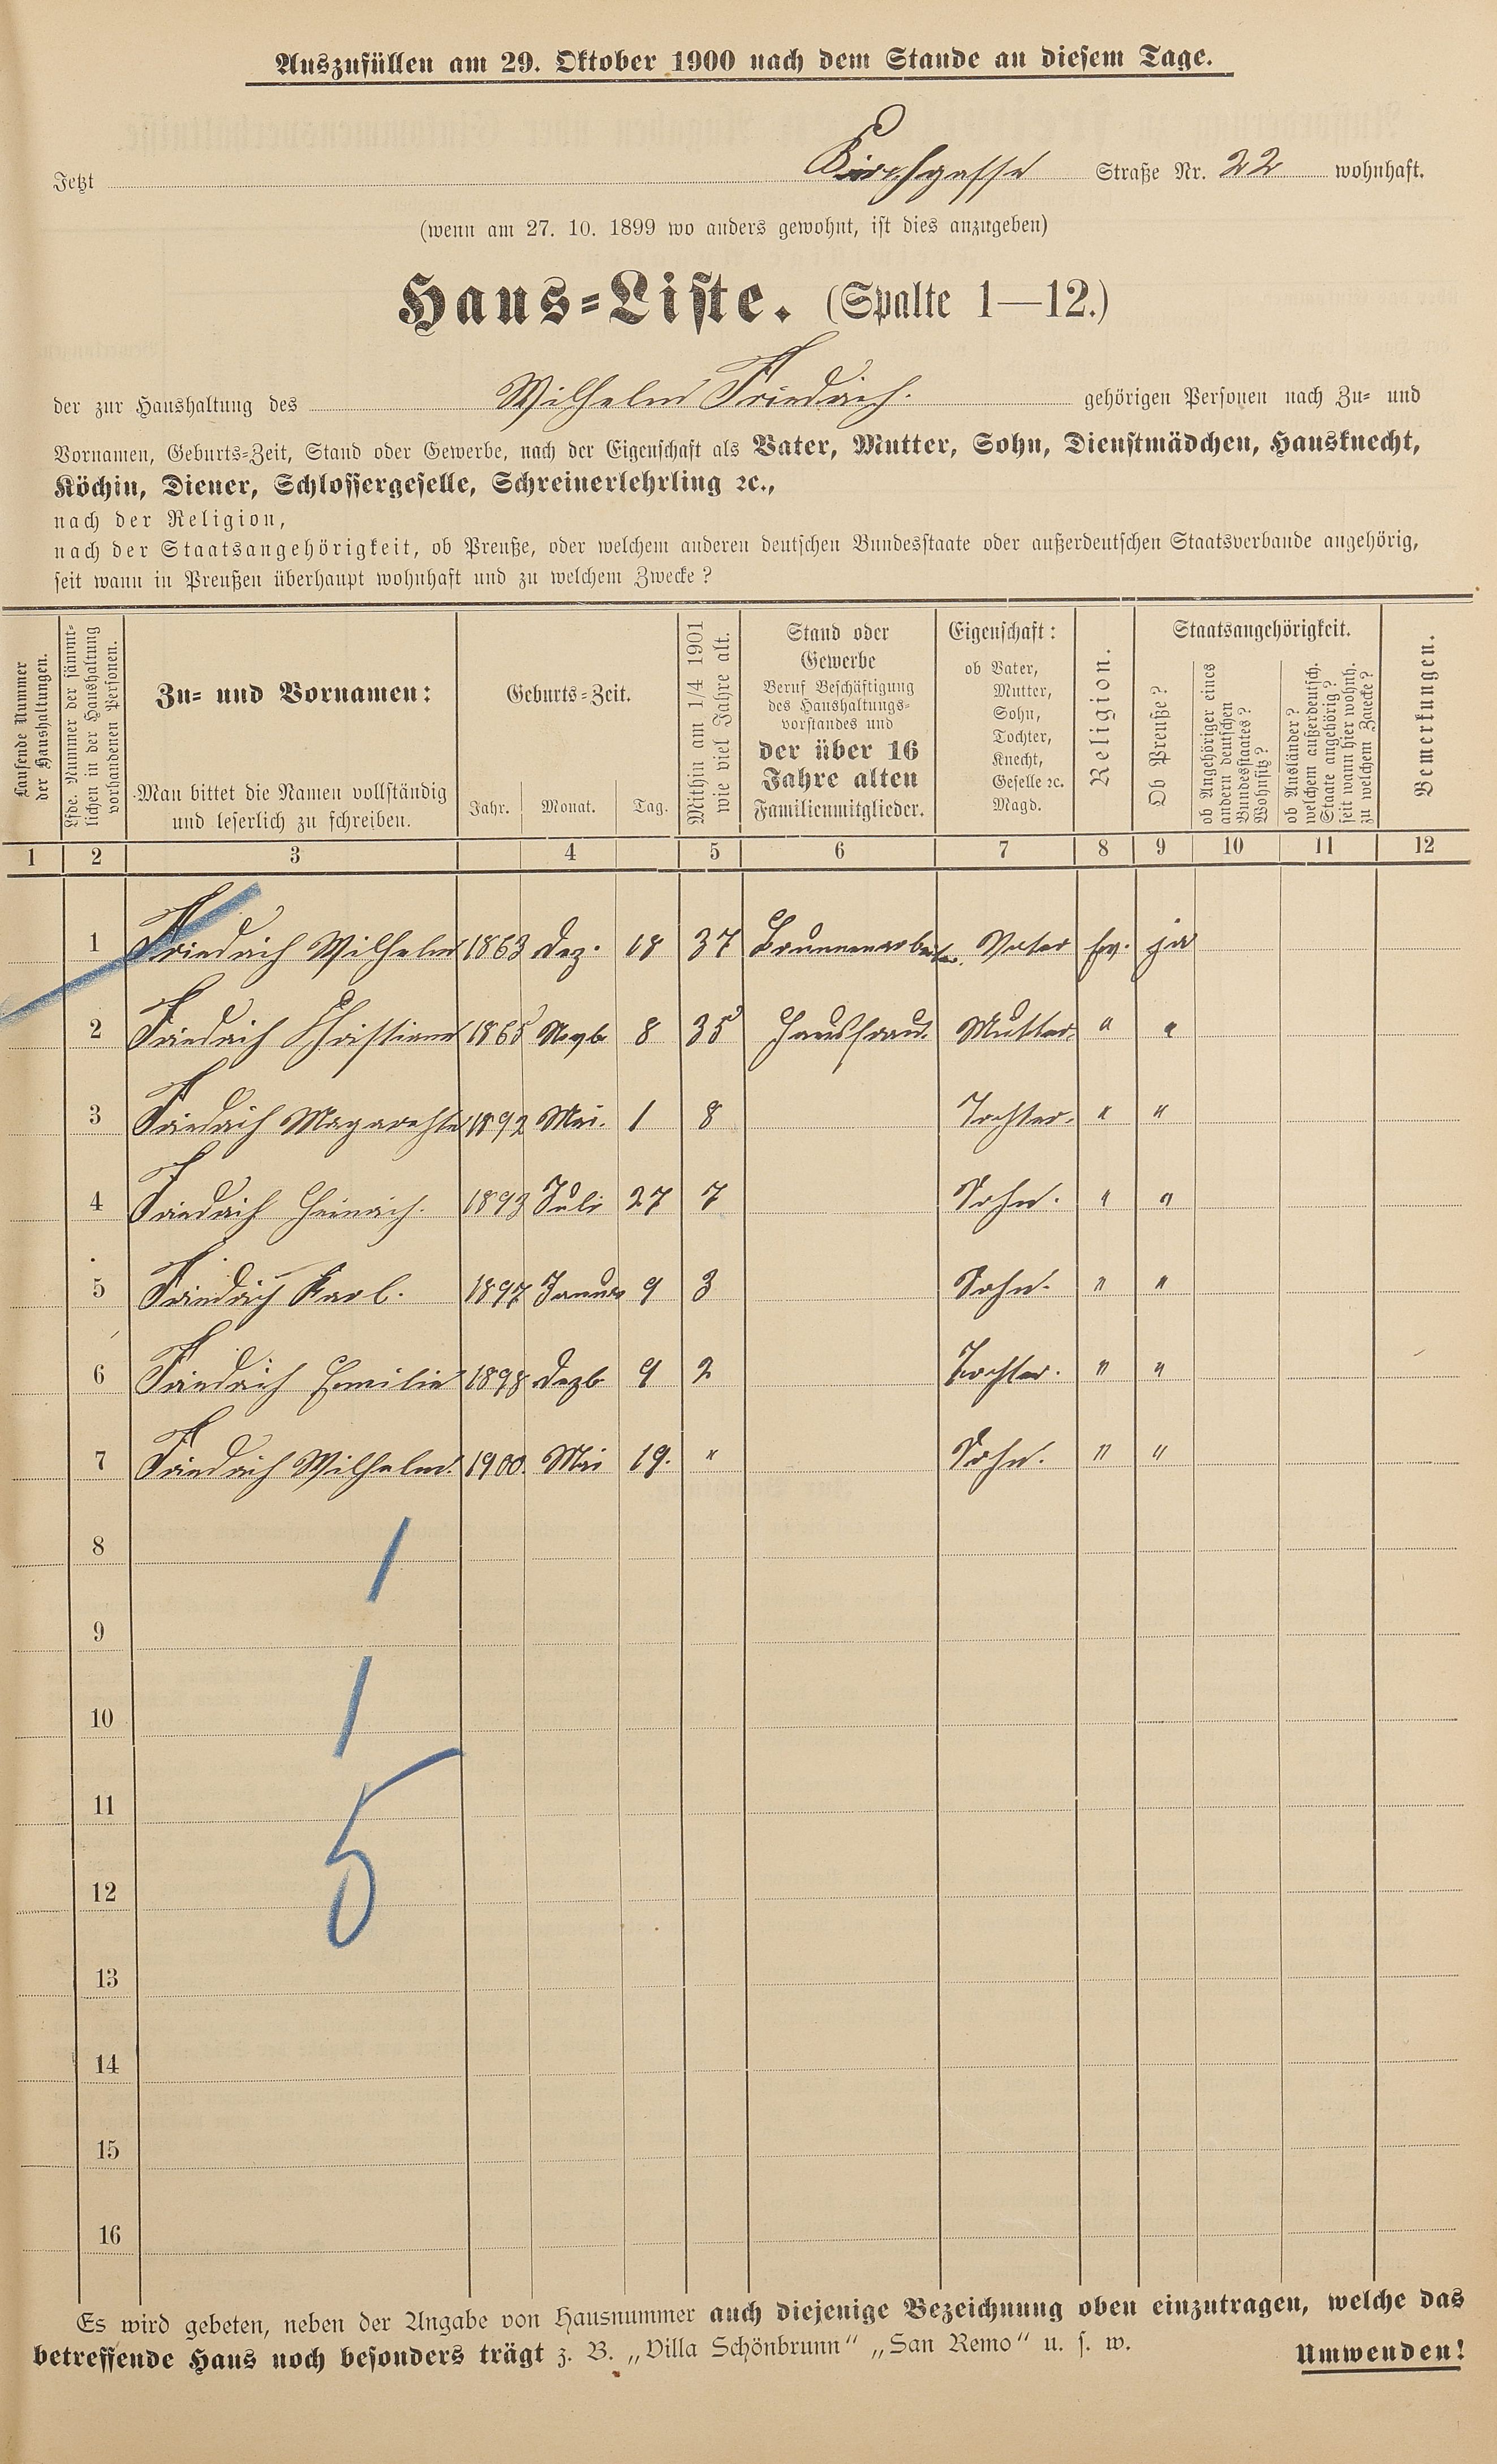 Auszufüllen am 29. Oktober 1900 nach dem Stande an diesem Tage.
Jetzt Kirchgasse Straße Nr. 22 wohnhaft.
(wenn am 27. 10. 1899 wo anders gewohnt, ist dies anzugeben)
Haus-Liste. (Spalte 1—12.)
der zur Haushaltung des Wilhelm Friedrich. gehörigen Personen nach Zu- und
Vornamen, Geburts-Zeit, Stand oder Gewerbe, nach der Eigenschaft als Vater, Mutter, Sohn, Dienstmädchen, Hausknecht,
Köchin, Diener, Schlossergeselle, Schreinerlehrling ꝛc.,
nach der Religion,
nach der Staatsangehörigkeit, ob Preuße, oder welchem anderen deutschen Bundesstaate oder außerdeutschen Staatsverbande angehörig,
seit wann in Preußen überhaupt wohnhaft und zu welchem Zwecke?
Laufende Nummer
der Haushaltungen.
Lfde. Nummer der sämmt-
lichen in der Haushaltung
vorhandenen Personen.
Zu- und Vornamen:
Man bittet die Namen vollständig
und leserlich zu schreiben.
Geburts-Zeit.
Jahr. Monat. Tag.
Mithin am 1/4 1901
wie viel Jahre alt.
Stand oder
Gewerbe
Beruf Beschäftigung
des Haushaltungs-
vorstandes und
der über 16
Jahre alten
Familienmitglieder.
Eigenschaft:
ob Vater,
Mutter,
Sohn,
Tochter,
Knecht,
Geselle ꝛc.
Magd.
Religion.
Staatsangehörigkeit.
Ob Preuße?
ob Angehöriger eines
andern deutschen
Bundesstaates?
Wohnsitz?
ob Ausländer?
welchem außerdeutsch.
Staate angehörig?
seit wann hier wohnh.
zu welchem Zwecke?
Bemerkungen.
1 2 3 4 5 6 7 8 9 10 11 12
1 Friedrich Wilhelm 1863 Dez. 18 37 Brunnenarbeiter. Vater ev. ja
2 Friedrich Christiane 1865 Novb 8 35 Hausfrau. Mutter. " "
3 Friedrich Magarethe 1892 Mai. 1 8 Tochter. " "
4 Friedrich Heinrich. 1893 Juli 27 7 Sohn. " "
5 Friedrich Karl. 1897 Januar 9 3 Sohn. " "
6 Friedrich Emilie 1898 Dezb 9 2 Tochter. " "
7 Friedrich Wilhelm. 1900. Mai 19. " Sohn. " "
8 1
9
10 1
11
12 5
13
14
15
16
Es wird gebeten, neben der Angabe von Hausnummer auch diejenige Bezeichnung oben einzutragen, welche das
betreffende Haus noch besonders trägt z. B. „Villa Schönbrunn“ „San Remo“ u. s. w.
Umwenden!